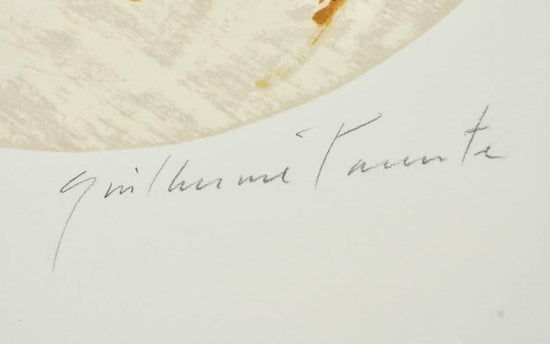 Guilherme Parente